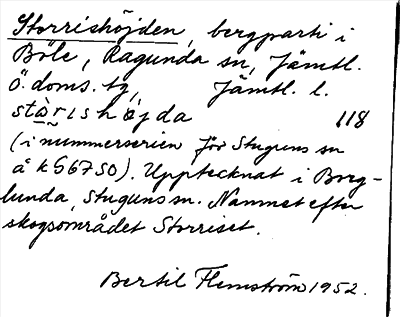 Storrishöjden, bergparti i
Böle, Ragunda sn, Jämtl.
ö. doms. tg, Jämtl. l.
stò̱rishøjda 118
(i nummerserien för Stuguns sn
å k 66750). Upptecknat i Borg-
lunda, Stuguns sn. Namnet efter
skogsområdet Storriset.
Bertil Flemström 1952.